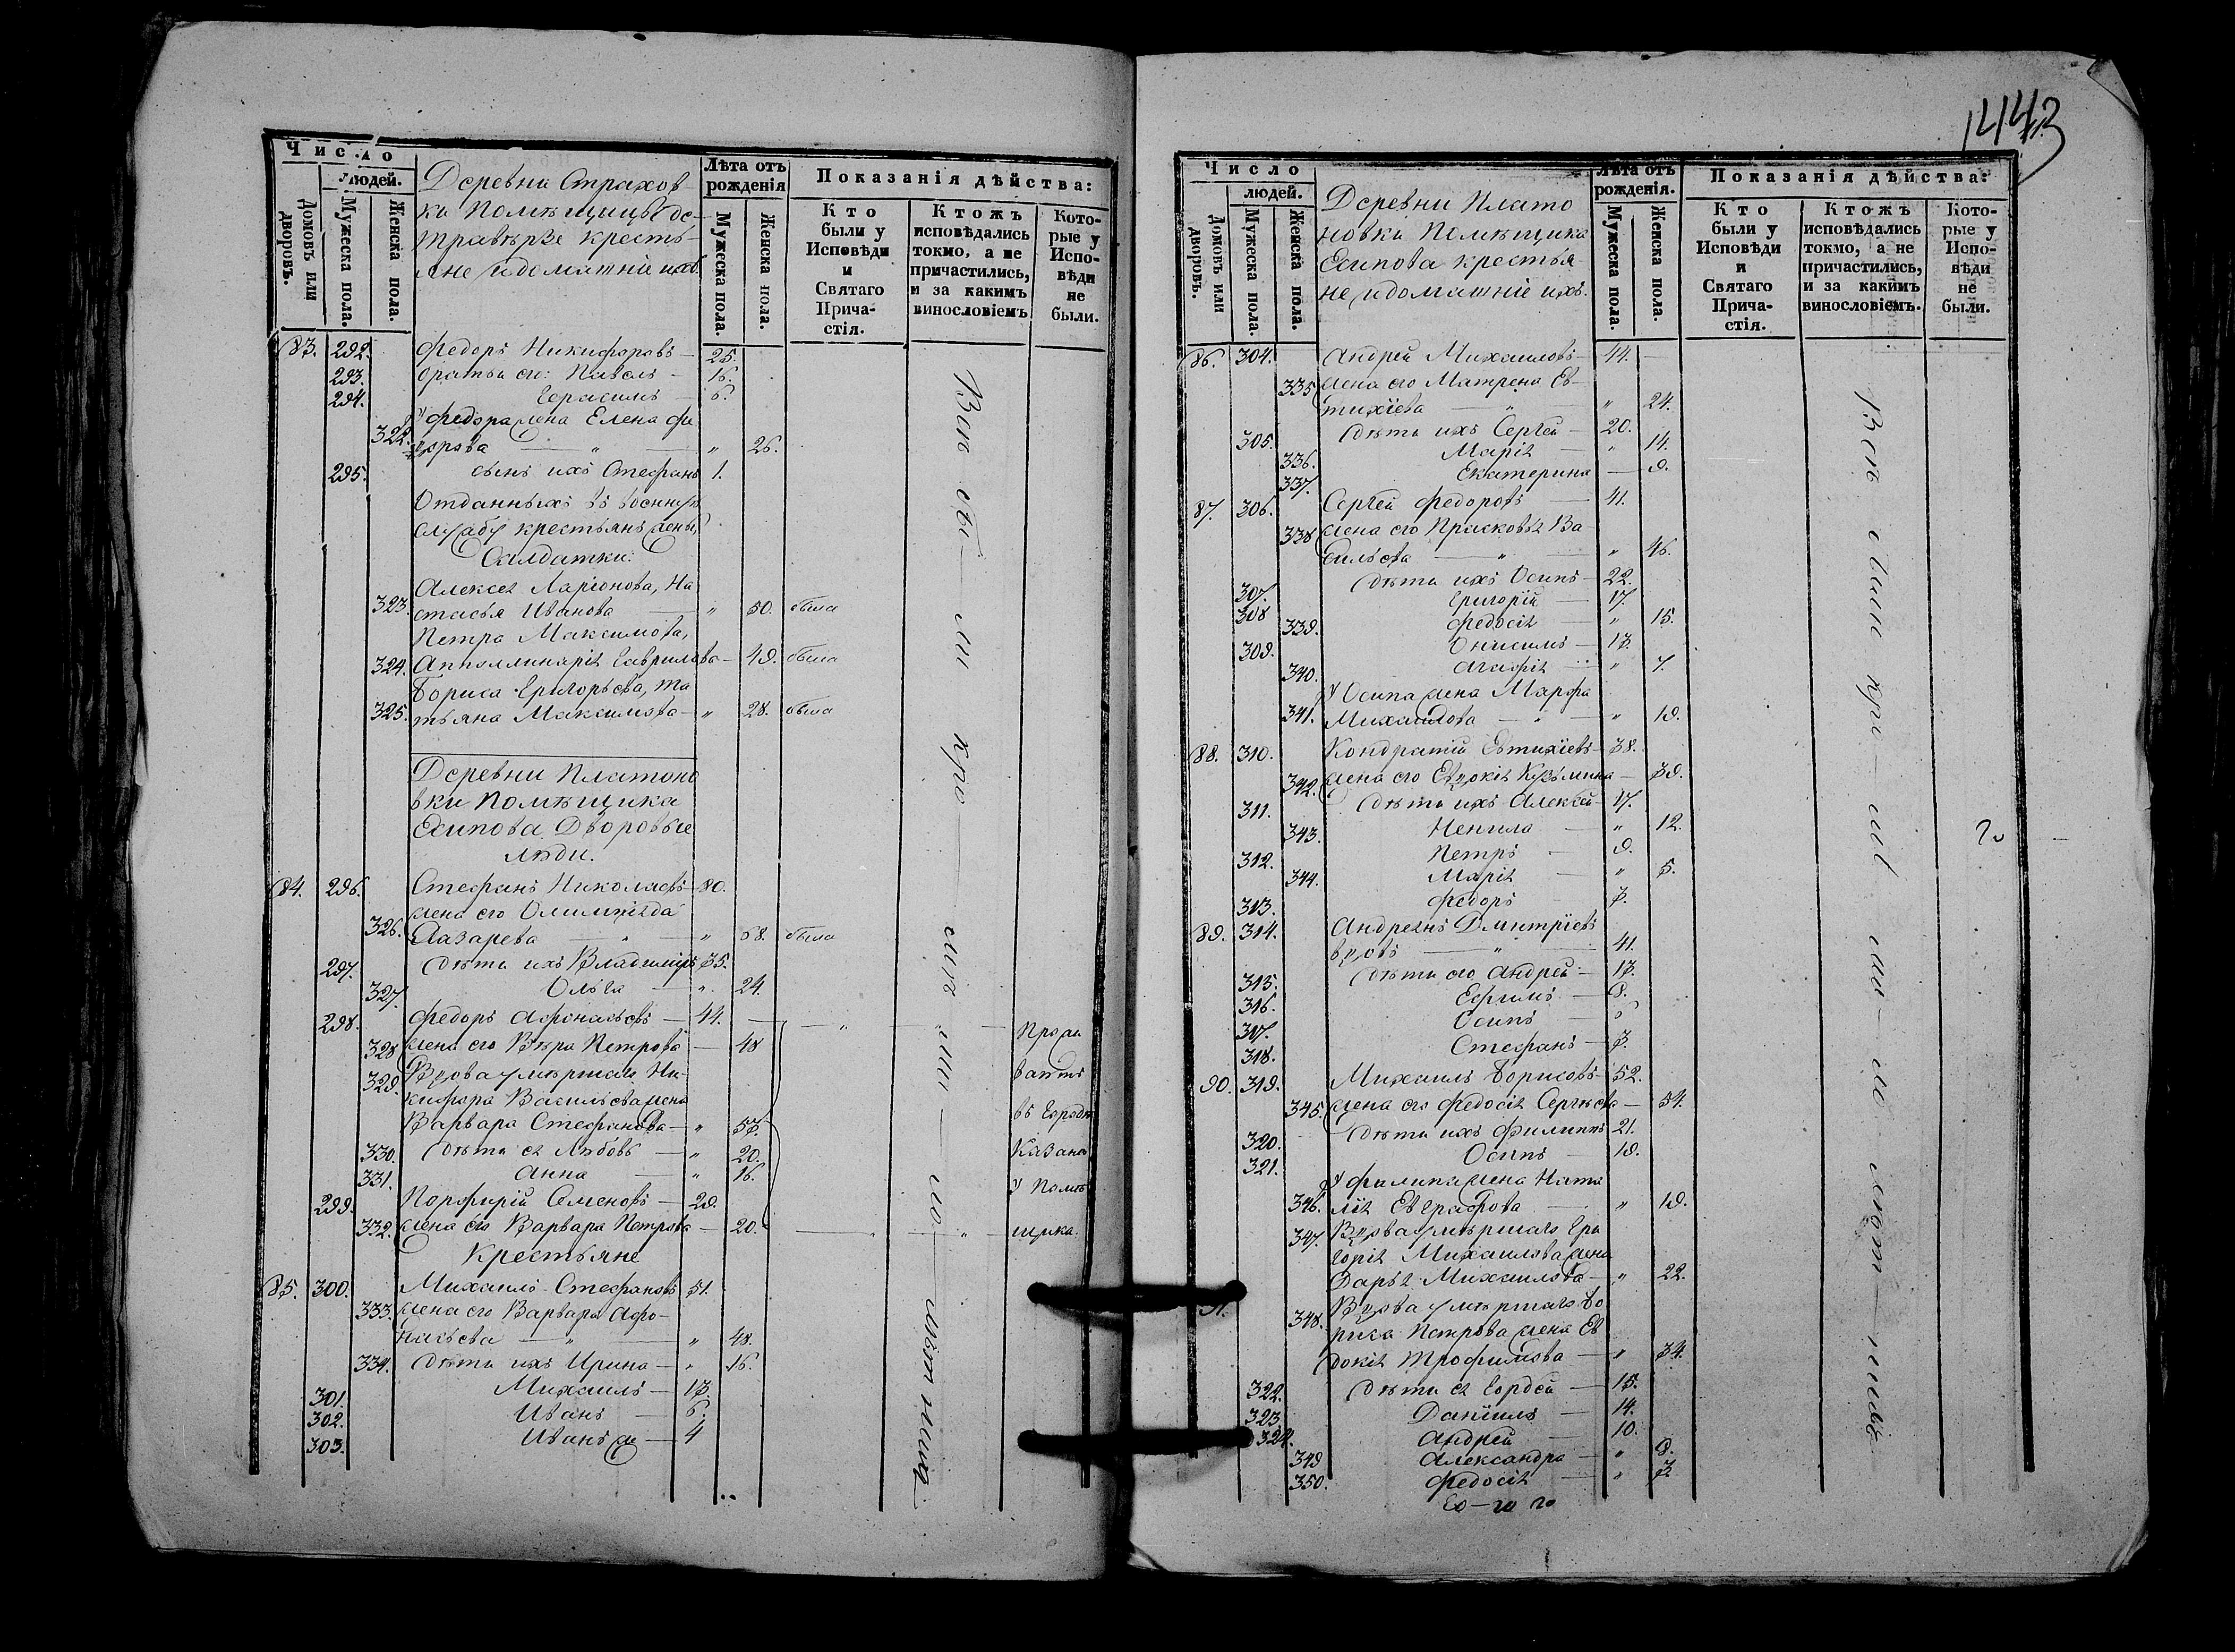 Число
людей.
Домовъ или дворовъ.
Мужеска пола.
Женска пола.
Деревни Страхов-
ки Помѣщицы де-
Траверзе кресть-
яне и домашніе ихъ.
Лѣта отъ рожденія
Мужеска пола.
Женска пола.
Показанія дѣйства:
Кто были у Исповѣди и Святаго Прича-стія.
Ктожъ исповѣдались токмо, а не причастились, и за какимъ винословіемъ
Кото-рые у Испо-вѣди не были.
83. 292. Федоръ Никифоровъ — 25.
293. братья его: Павелъ — 16.
294. Герасимъ — 6.
322. У Федора жена Елена Фе
дорова — " — " 26.
295. сынъ ихъ Стефанъ 1.
Отданныхъ въ военную
службу крестьянъ жены,
Салдатки:
Алексея Ларіонова, На
323. стасья Иванова — " 50. была
Петра Максимова,
324. Апполлинарія Гаврилова — 49. была
Бориса Григорьева, Та
325. тьяна Максимова — " 28. была
Деревни Платоно
вки Помѣщика
Есипова Дворовые
люди.
84. 296. Стефанъ Николаевъ — 80.
жена его Олимпіяда
326. Лазарева — " — " 68. была
297. Дѣти ихъ Владиміръ 35.
327. Ольга — " 24.
298. Федоръ Афонасьевъ — 44. — " — " —
328 жена его Вѣра Петрова — 48
329. Вдова умершаго Ни-
кифора Васильева жена
Варвара Стефанова — " 53.
330. Дѣти ея Любовь — " 20.
331. Анна — " 16.
299. Порфирій Семеновъ — 29.
332. жена его Варвара Петрова — 20. — " — " —
Прожи
ваютъ
въ Городѣ
Казани
у Помѣ
щика.
Крестьяне
85. 300. Михаилъ Стефановъ 51.
333. жена его Варвара Афо-
насьева — " — " 48.
334. Дѣти ихъ Ирина — " 16.
301. Михаилъ — 13.
302. Иванъ — 6.
303. Иванъ же — 4
1443
Число
людей.
Домовъ или дворовъ.
Мужеска пола.
Женска пола.
Деревни Плато
новки Помѣщика
Есипова крестья
не и домашніе ихъ.
Лѣта отъ рожденія.
Мужеска пола.
Женска пола.
Показанія дѣйства:
Кто были у Исповѣди и Святаго Прича-стія.
Ктожъ исповѣдались токмо, а не причастились, и за какимъ винословіемъ.
Кото-рые у Испо-вѣди не были.
86. 304. Андрей Михаиловъ — 44.
335 жена его Матрена Ев-
тихіева — " — " 24.
305. Дѣти ихъ Сергей — 20.
336. Марія — " 14.
337. Екатерина — 9.
87. 306. Сергей Федоровъ — 41.
338 жена его Прасковья Ва
сильева — " — " 46.
307. Дѣти ихъ Осипъ — 22.
308 Григорій — 17.
339. Федосія — " 15.
309. Онисимъ — 13.
340. Агафія — " 7.
У Осипа жена Марфа
341. Михаилова — " — " 19.
88. 310. Кондратій Евтихіевъ — 38.
342. жена его Евдокія Кузьмина — 39.
311. Дѣти ихъ Алексѣй — 17.
343. Ненила — " 12.
312. Петръ — 9.
344. Марія — " 5.
313. Федоръ — 3.
89. 314. Андреянъ Дмитріевъ
вдовъ — " — 41.
315. Дѣти его Андрей — 13.
316. Ефимъ — 8.
317. Осипъ —
318. Стефанъ — 3.
90. 319. Михаилъ Борисовъ — 52.
345. жена его Федосія Сергѣева — 54.
320. Дѣти ихъ Филиппъ 21.
321. Осипъ — 19.
У Филипа жена Ната
346. лія Евграфова — " 19.
347. Вдова умершаго Гри
горія Михаилова жена
Дарья Михаилова — " 22.
91. 348. Вдова умершаго Бо
риса Петрова жена Ев
докія Трофимова — " 34.
322. Дѣти ея Гордей — 15.
323. Даніилъ — 14.
324. Андрей — 10.
349 Александра — " 8.
350. Федосія — " 3